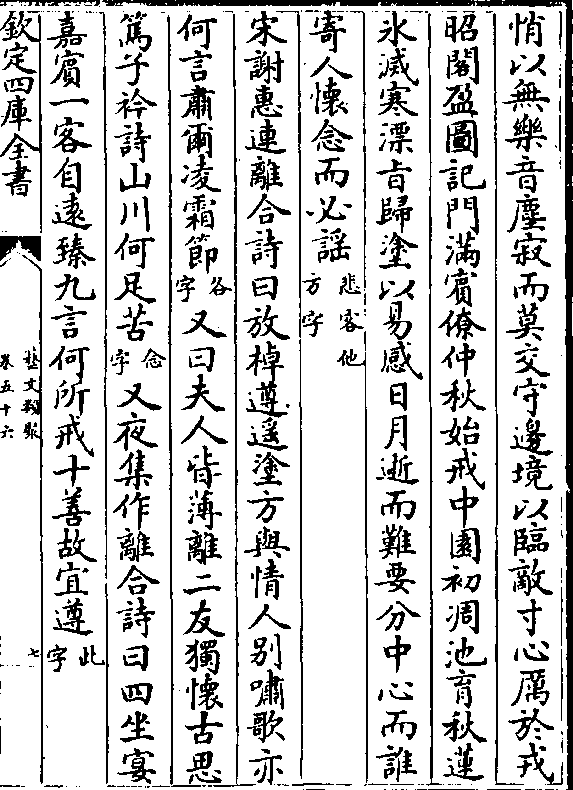 悄以無樂音塵寂而莫交守邊境以臨敵寸心厲於戎
昭閣盈圖記門滿賓僚仲秋始戒中園初凋池育秋蓮
水滅寒漂旨歸塗以易感日月逝而難要分中心而誰
寄人懷念而必謡悲客他方字
宋謝惠連離合詩曰放棹遵遥塗方與情人别嘯歌亦
何言肅爾凌霜節各字又曰夫人皆薄離二友獨懷古思
篤子衿詩山川何足苦念字又夜集作離合詩曰四坐宴
嘉賓一客自遠臻九言何所戒十善故宜遵此字
欽定四庫全書
藝文類聚
卷五十六
七